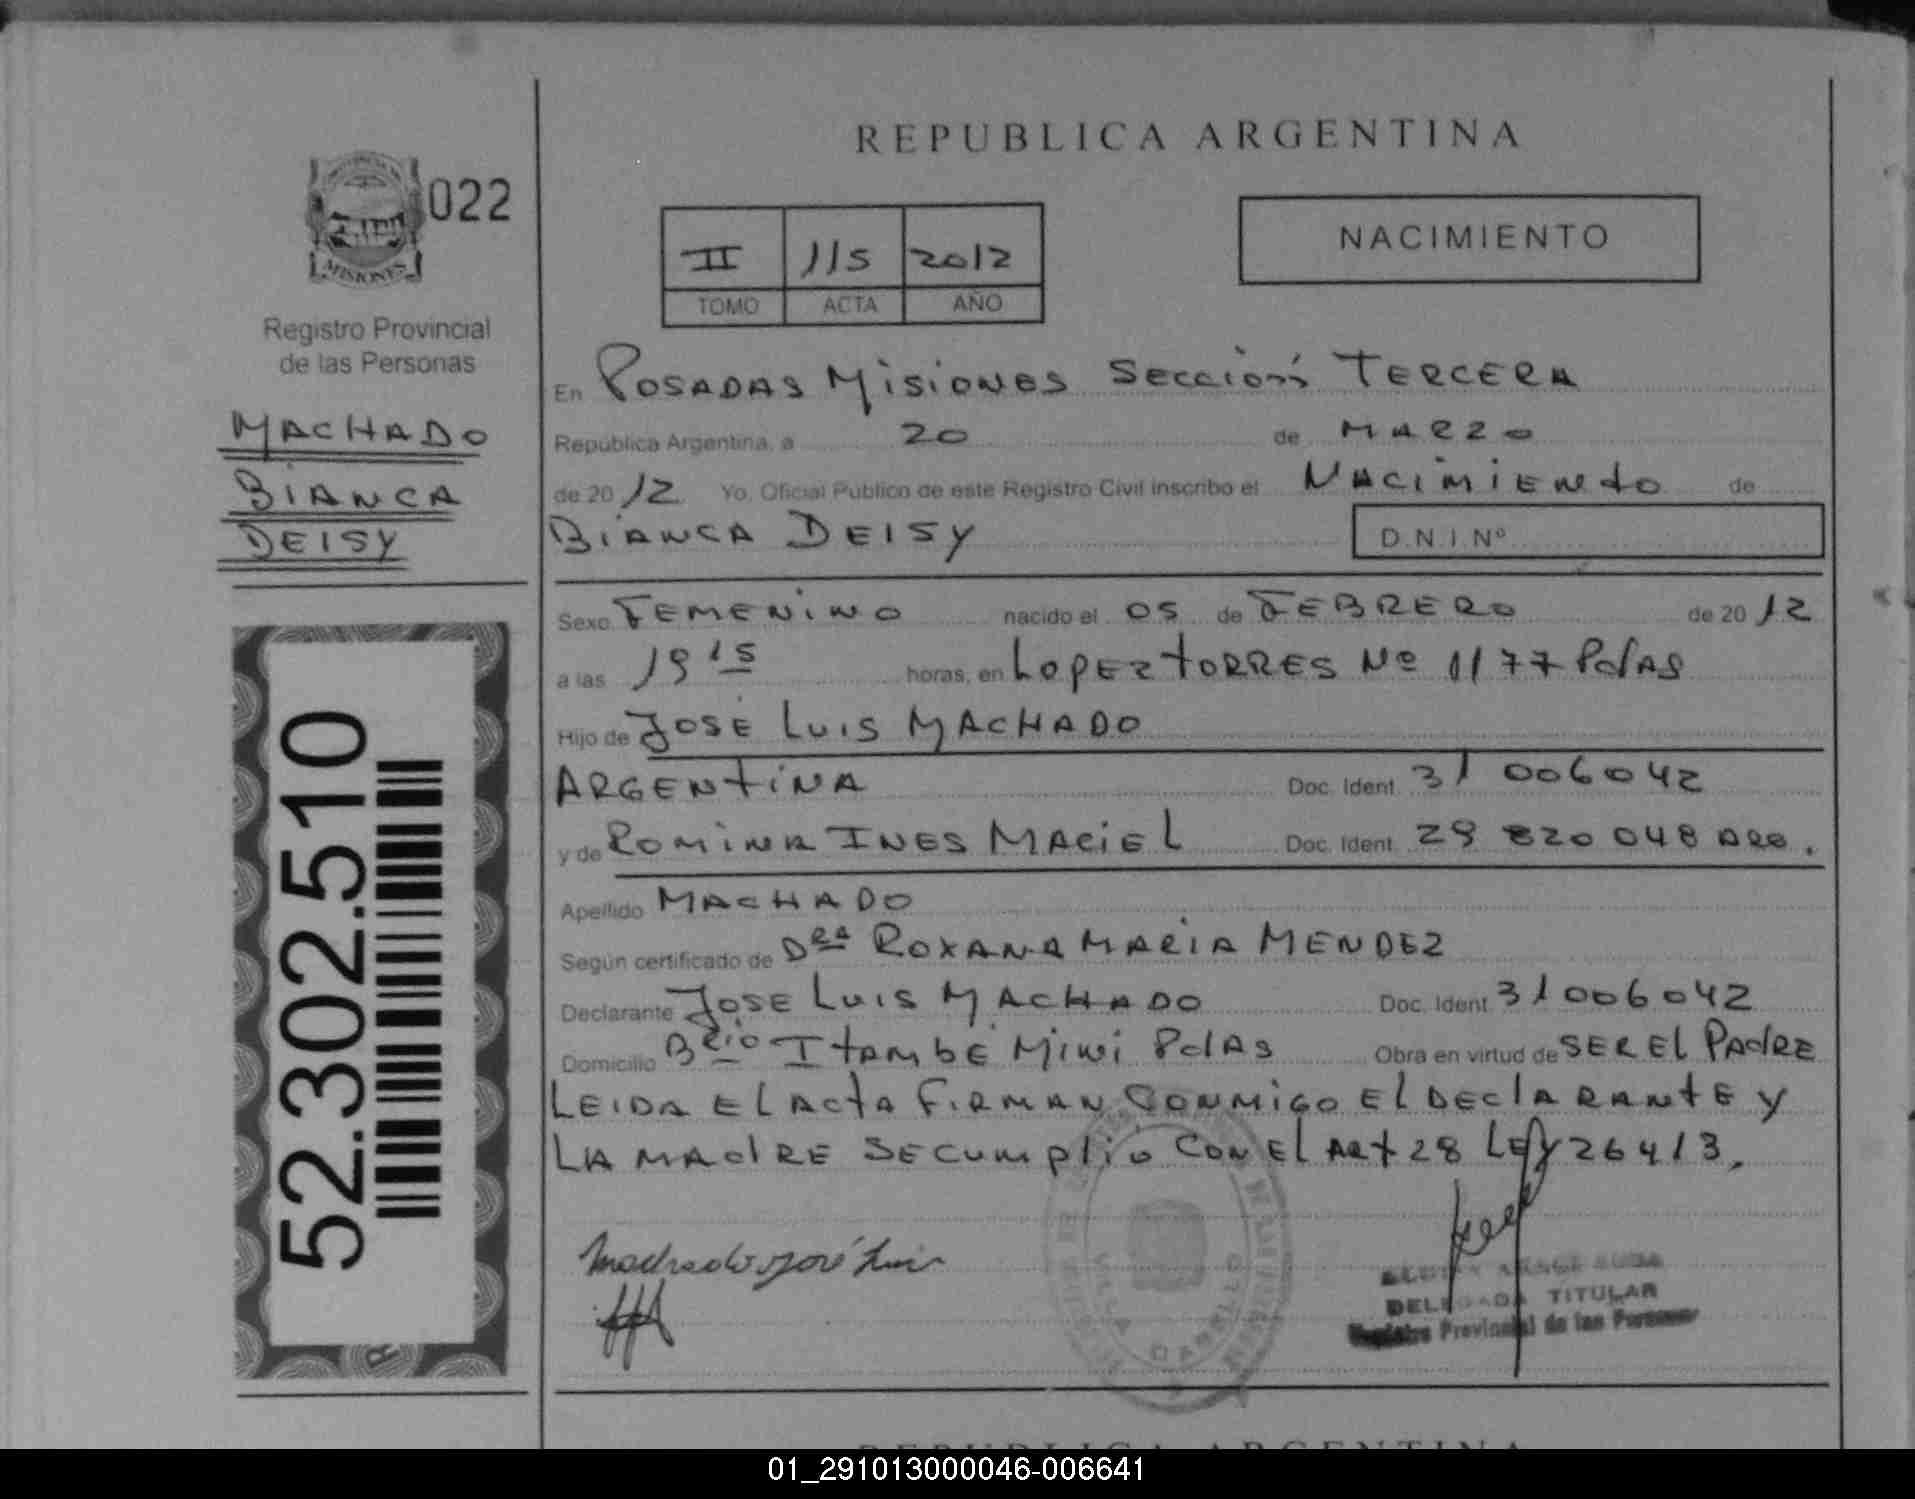 REPUBLICA ARGENTINA
022
MISIONES
NACIMIENTO
II 115 2012
TOMO ACTA AÑO
Registro Provincial
de las Personas
MACHADO
BIANCA
DEISY
En POSADAS MISIONES SECCIÓN TERCERA
República Argentina, a 20 de MARZO
de 20 12 Yo, Oficial Público de este Registro Civil inscribo el NACIMIENTO de
BIANCA DEISY D.N.I.Nº
Sexo FEMENINO nacido el 05 de FEBRERO de 20 12
a las 19 15 horas, en LOPEZ TORRES Nº 1177 PdAS
Hijo de JOSÉ LUIS MACHADO
ARGENTINA Doc. Ident. 31 006042
y de ROMINA INES MACIEL Doc. Ident. 29 820 048 ARG.
Apellido MACHADO
Según certificado de DRA ROXANA MARIA MENDEZ
Declarante JOSE LUIS MACHADO Doc. Ident. 31006042
Domicilio BRIO ITAMBÉ MINI PdAS Obra en virtud de SER EL PADRE
LEIDA EL ACTA FIRMAN CONMIGO EL DECLARANTE Y
LA MADRE SE CUMPLIÓ CON EL ART 28 LEY 26413,
52.302.510
Machado José Luis
VILLA CABELLO
DELEGADA TITULAR
Registro Provincial de las Personas
REPUBLICA ARGENTINA
01_291013000046-006641